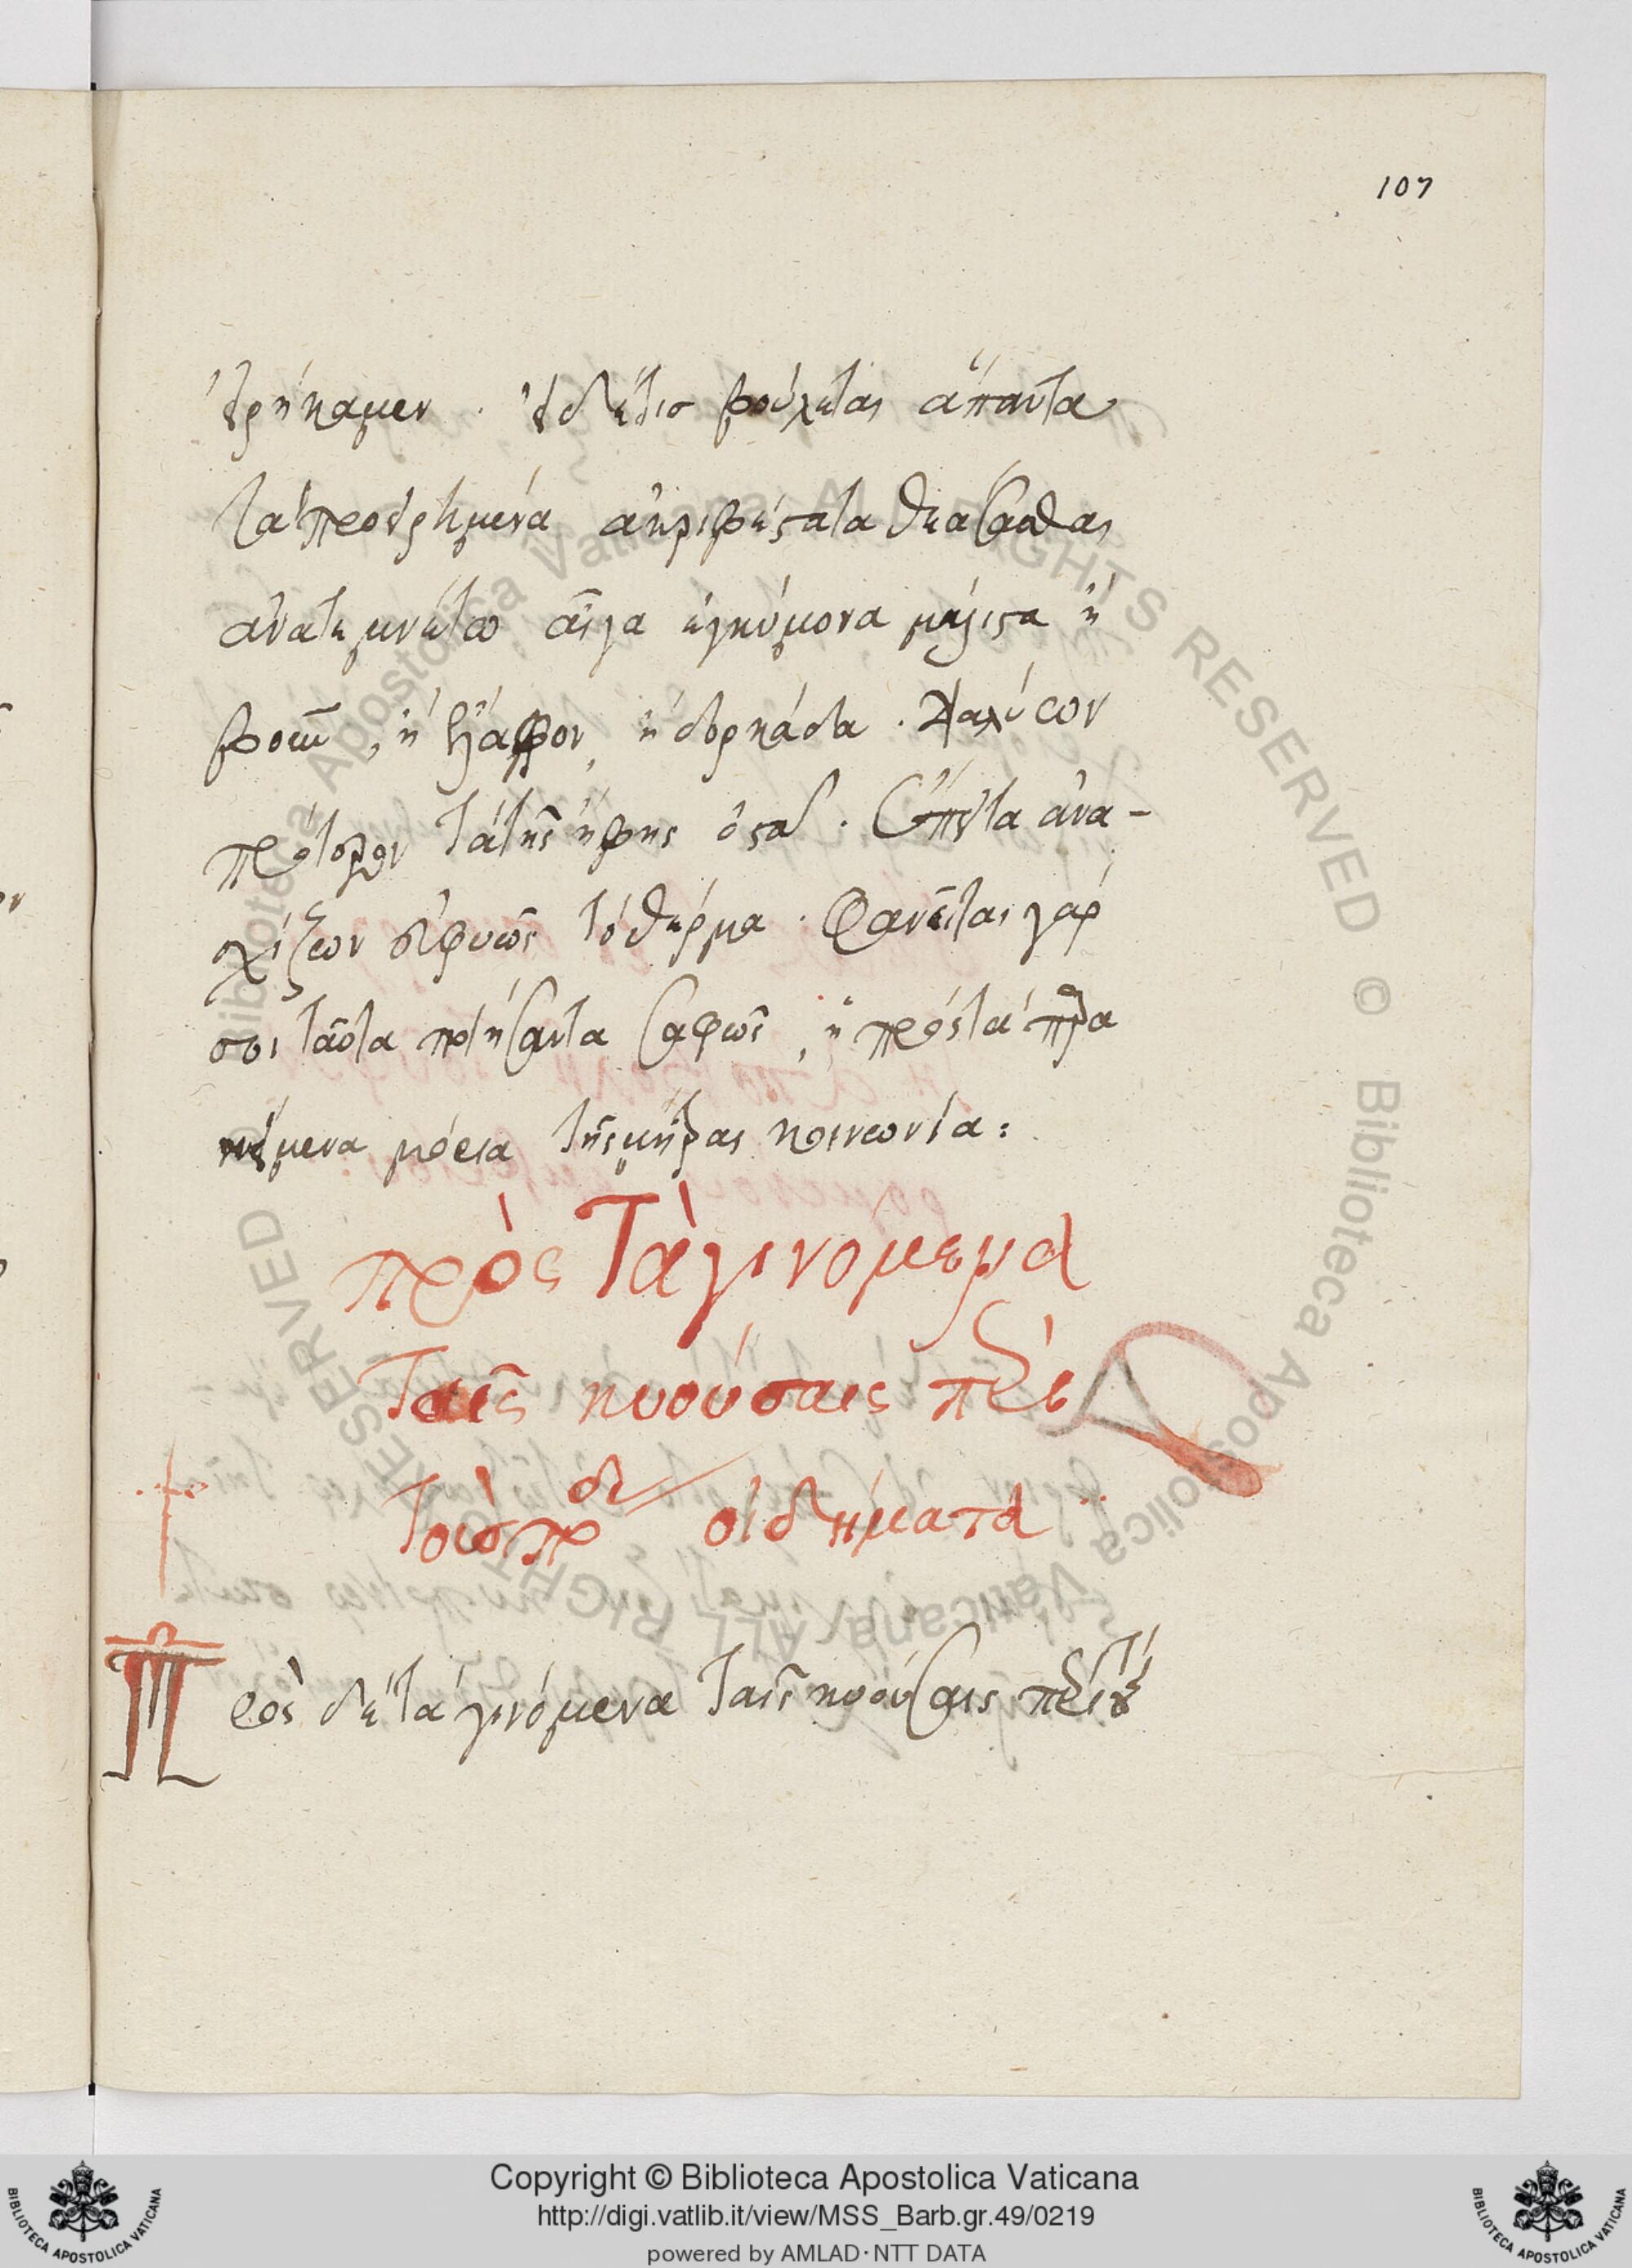 107
εἰρήκαμεν . εἰ δέ τις βούλεται ἅπαντα
τὰ προειρημένα ἀκριβέστατα θεάσασθαι
ἀνατεμνέτω αἶγα ἐγκύμονα μάλιστα ἢ
βοῦν , ἢ ἔλαφον, ἢ δορκάδα .
τὰ τῆς ἥβης ὀστᾶ . ἔπειτα ἀνα-
σχίζων εὐφυῶς τὸ δέρμα . φανεῖται γάρ
σοι ταῦτα ποιήσαντα σαφῶς , ἡ πρὸς τὰ
κείμενα μόρια τῆς μήτρας κοινωνία :
πρὸς τὰ γινόμενα
ταῖς κυούσαις περὶ
τοὺς πόδ οἰδήματα
Πρὸς δὲ τὰ γινόμενα ταῖς κυούσαις περὶ τοὺς
Copyright © Biblioteca Apostolica Vaticana
http://digi.vatlib.it/view/MSS_Barb.gr.49/0219
powered by AMLAD·NTT DATA
BIBLIOTECA APOSTOLICA VATICANA
BIBLIOTECA APOSTOLICA VATICANA
© Biblioteca Apostolica Vaticana ALL RIGHTS RESERVED © Biblioteca Apostolica Vaticana ALL RIGHTS RESERVED